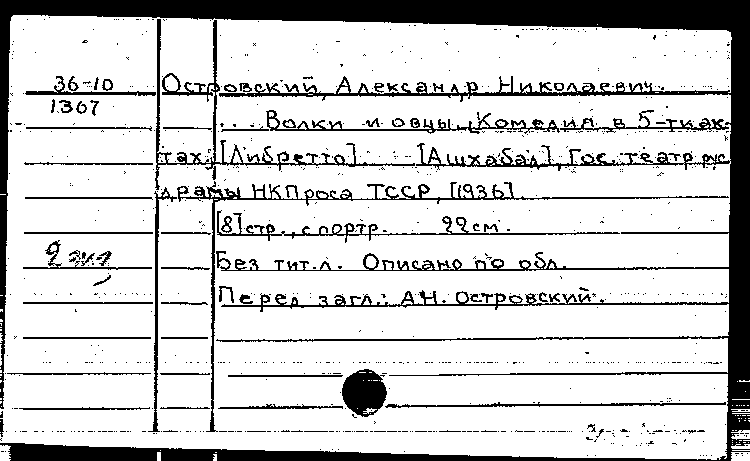 36-10 Островский, Александр Николаевич.
1367
... Волки и овцы. (Комедия в 5-ти ак-
тах.) [Либретто]. — [Ашхабад], Гос. театр рус
драмы НКПроса ТССР, [1936].
[8] стр., с портр. 22 см.
2 экз
Без тит. л. Описано по обл.
Перед загл.: А.Н. Островский.